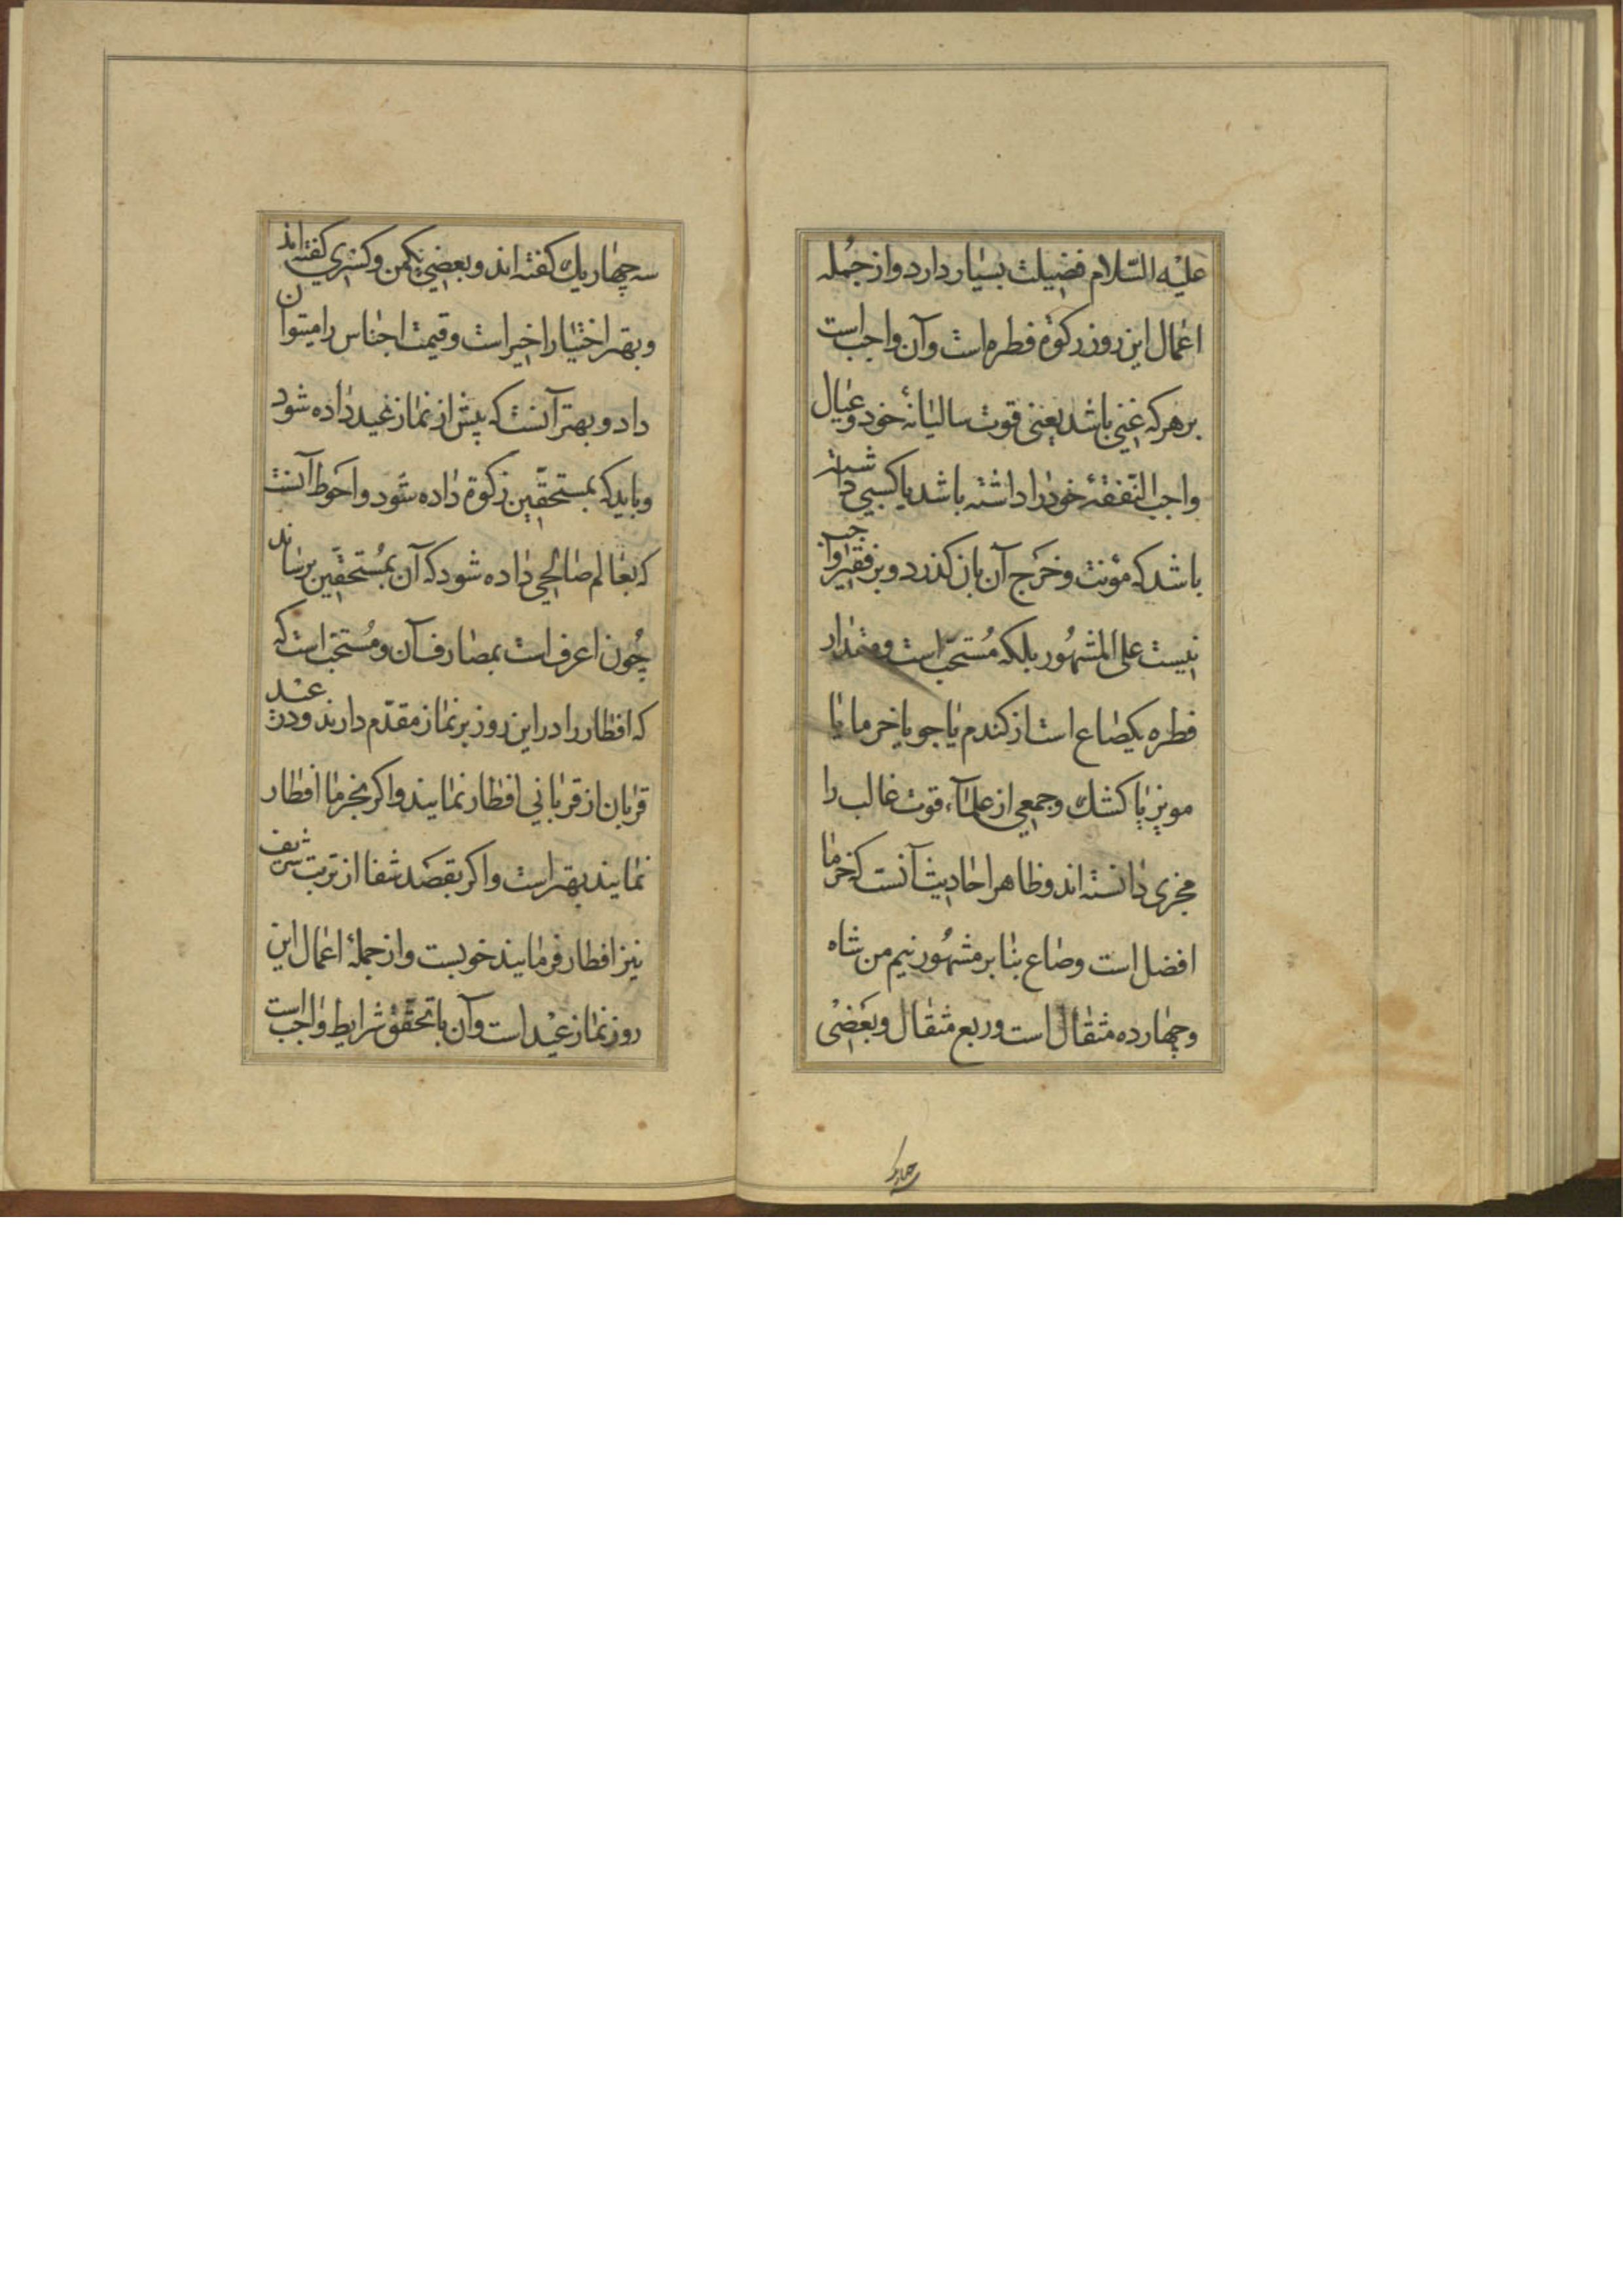 علیه السّلام فضیلت بسیار دارد و از جُمله
اعمال این روز زکوة فطره است و آن واجب است
بر هر که غنی باشد یعنی قوت سالیانهٔ خود و عیال
واجب النّفقهٔ خود را داشته باشد یا کسبی داشته
باشد که مؤنت و خرج آن بان کذرد و بر فقیر واجب
نیست علی المشهُور بلکه مُستحبّ است و مقدار
فطره یکصاع است از کندم یا جو یا خرما یا
مویز یا کشك و جمعی از علمآء قوت غالب را
مجزی دانسته اند و ظاهر احادیث آنست که خرما
افضل است و صاع بنا بر مشهُور نیم من شاه
و چهارده مثقال است و ربع مثقال و بعضی
سه چهار یك کفته اند و بعضی یکمن و کسری کفته اند
و بهتر اختیار اخیر است و قیمت اجناس را میتوان
داد و بهتر آنست که پیش از نماز عید داده شود
و باید که بمستحقّین زکوة داده شود و احوط آنست
که بعالم صالحی داده شود که آن بمُستحقّین برساند
چُون اعرف است بمصارف آن و مُستحبّ است که
که افطار را در این روز بر نماز مقدّم دارند و در عید
قربان از قربانی افطار نمایند و اکر بخرما افطار
نمایند بهتر است و اکر بقصد شفا از تربت شریف
نیز افطار فرمایند خوبست و از جملهٔ اعمال این
روز نماز عید است و آن با تحقّق شرایط واجب است